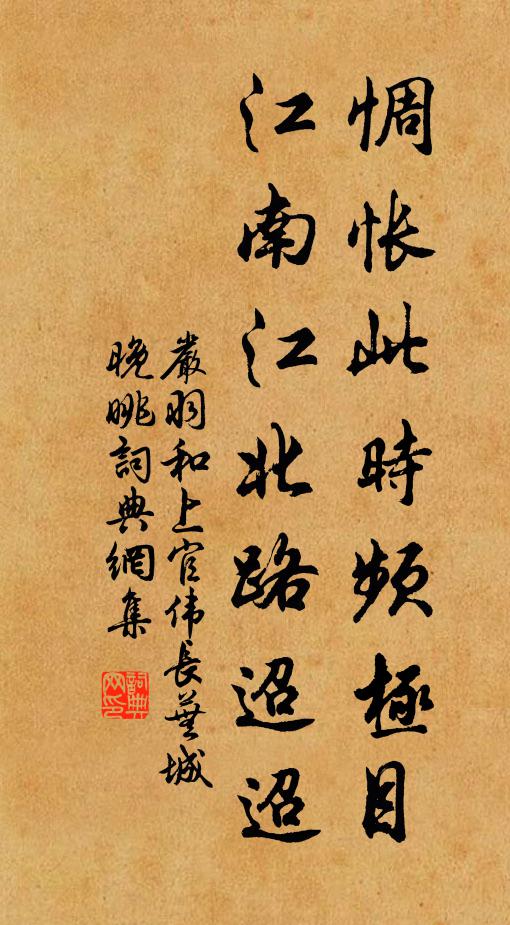 惆怅此時頻極目
江南江北路迢迢
嚴羽和上官伟長蕪城
晚眺詞典網集
詞典网印